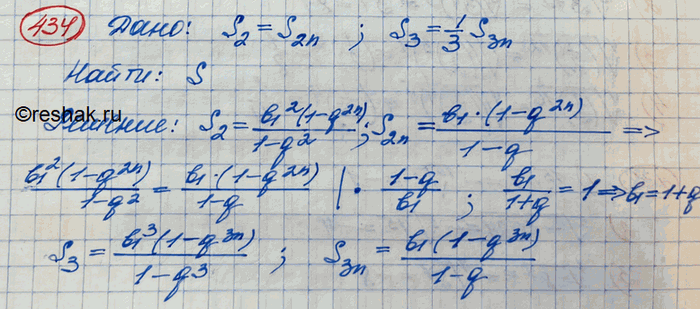 434 Дано: S₂ = S₂ₙ ; S₃ = 1/3 S₃ₙ
Найти: S
©reshak.ru
Решение: S₂ = в₁²(1-q²ⁿ)/1-q² ; S₂ₙ = в₁·(1-q²ⁿ)/1-q =>
в₁²(1-q²ⁿ)/1-q² = в₁·(1-q²ⁿ)/1-q | · 1-q/в₁ ; в₁/1+q = 1 => в₁ = 1+q
S₃ = в₁³(1-q³ⁿ)/1-q³ ; S₃ₙ = в₁(1-q³ⁿ)/1-q